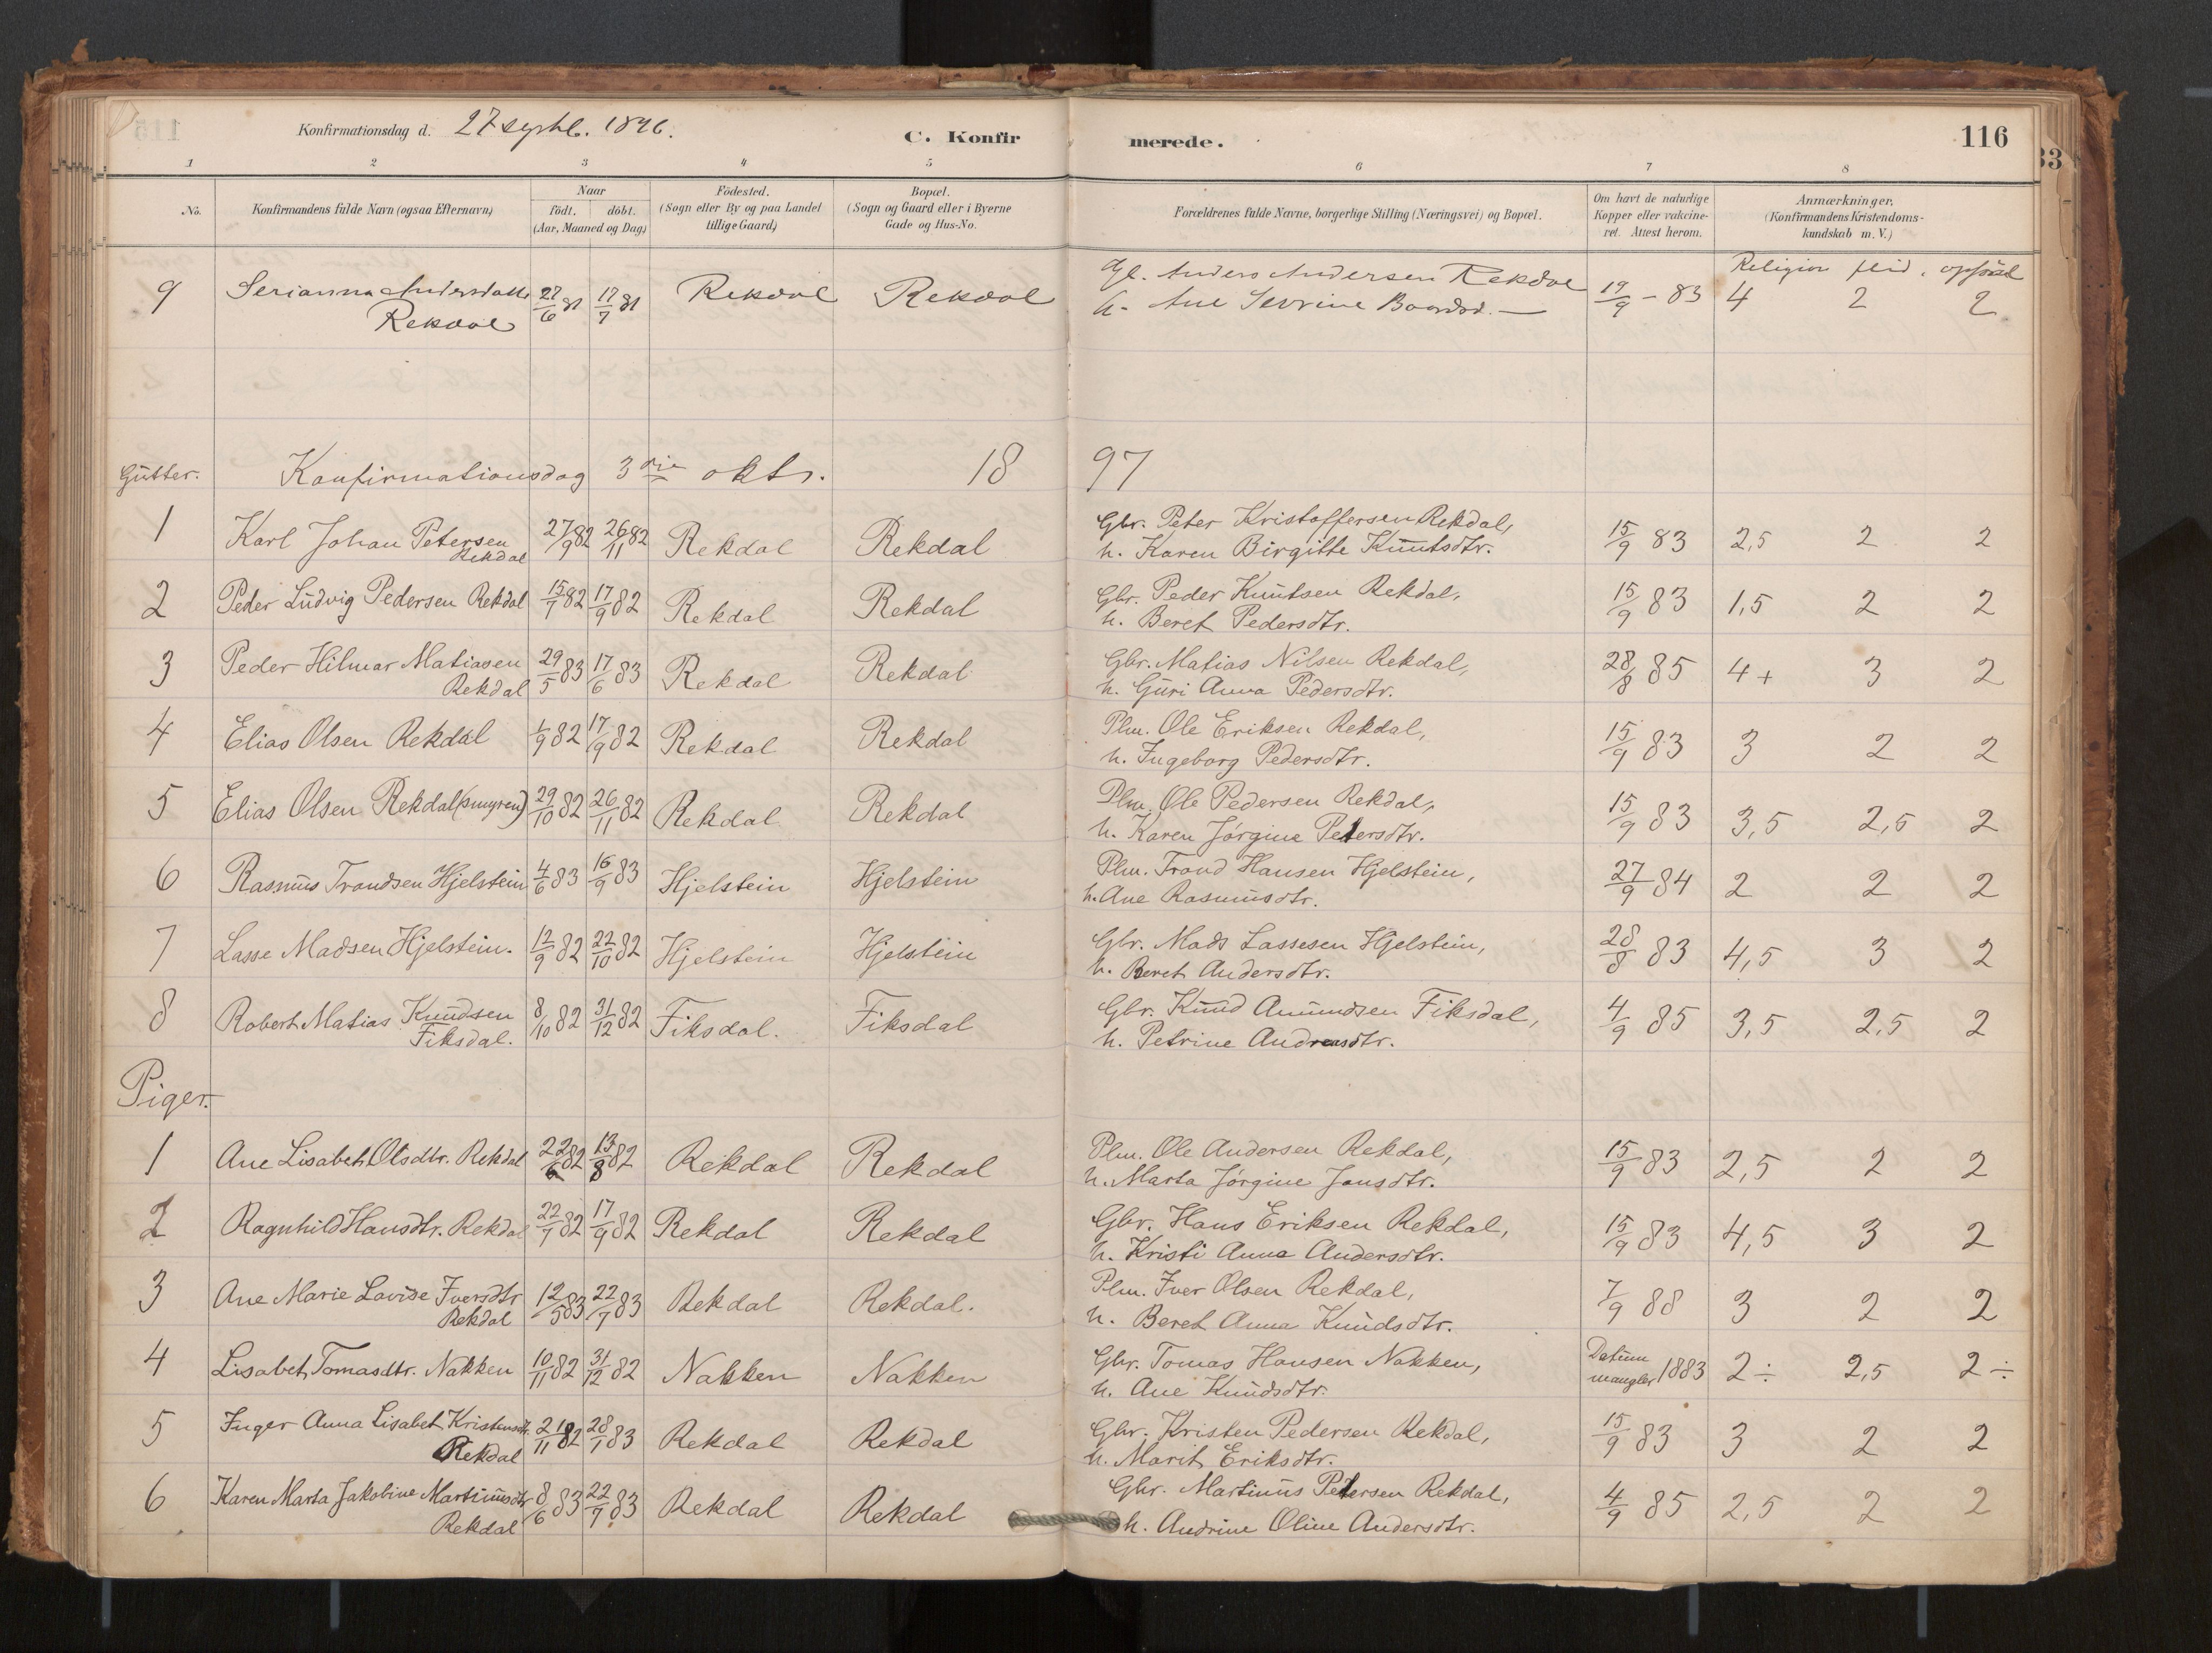 Konfirmationsdag d. 27 septb. 1896. C. Konfirmerede. 116
1 2 3 4 5 6 7 8
No. Konfirmandens fulde Navn (ogsaa Efternavn) Naar født. døbt. (Aar, Maaned og Dag) Födested. (Sogn eller By og paa Landet tillige Gaard) Bopæl. (Sogn og Gaard eller i Byerne Gade og Hus-No. Forældrenes fulde Navne, borgerlige Stilling (Næringsvei) og Bopæl. Om havt de naturlige Kopper eller vakcineret. Attest herom. Anmærkninger. (Konfirmandens Kristendomskundskab m. V.)
Religion flid. opførsel
9 Serianna Andersdatter Rekdal 27/6 81 17/7 81 Rekdal Rekdal Anders Andersen Rekdal h. Ane Serrine Baardsd. — 19/9 - 83 4 2 2
Gutter. Konfirmationsdag 3die oktr. 1897
1 Karl Johan Petersen Rekdal 27/9 82 26/11 82 Rekdal Rekdal Gbr. Peter Kristoffersen Rekdal, h. Karen Birgitte Knutsdtr. 15/9 83 2,5 2 2
2 Peder Ludvig Pedersen Rekdal 15/7 82 17/9 82 Rekdal Rekdal Gbr. Peder Knutsen Rekdal, h. Beret Pedersdtr. 15/9 83 1,5 2 2
3 Peder Hilmar Matiasen Rekdal 29/5 83 17/6 83 Rekdal Rekdal Gbr. Matias Nilsen Rekdal, h. Guri Anna Pedersdtr. 28/8 85 4+ 3 2
4 Elias Olsen Rekdal 1/9 82 17/9 82 Rekdal Rekdal Plm. Ole Eriksen Rekdal, h. Ingeborg Pedersdtr. 15/9 83 3 2 2
5 Elias Olsen Rekdal (smyren) 29/10 82 26/11 82 Rekdal Rekdal Plm. Ole Pedersen Rekdal, h. Karen Jørgine Petersdtr. 15/9 83 3,5 2,5 2
6 Rasmus Trondsen Hjelstein 4/6 83 16/9 83 Hjelstein Hjelstein Plm. Trond Hansen Hjelstein, h. Ane Rasmusdtr. 27/9 84 2 2 2
7 Lasse Madsen Hjelstein. 12/9 82 22/10 82 Hjelstein Hjelstein Gbr. Mads Lassesen Hjelstein, h. Beret Andersdtr. 28/8 83 4,5 3 2
8 Robert Matias Knudsen Fiksdal. 8/10 82 31/12 82 Fiksdal. Fiksdal Gbr. Knud Amundsen Fiksdal, h. Petrine Andreasdtr. 4/9 85 3,5 2,5 2
Piger.
1 Ane Lisabet Olsdtr. Rekdal 22/6 82 13/8 82 Rekdal Rekdal Plm. Ole Andersen Rekdal, h. Marta Jørgine Jonsdtr. 15/9 83 2,5 2 2
2 Ragnhild Hansdtr. Rekdal 22/7 82 17/9 82 Rekdal Rekdal Gbr. Hans Eriksen Rekdal, h. Kristi Anna Andersdtr. 15/9 83 4,5 3 2
3 Ane Marie Lovise Iversdtr Rekdal 12/5 83 22/7 83 Rekdal Rekdal. Plm. Iver Olsen Rekdal, h. Beret Anna Knudsdtr. 7/9 88 3 2 2
4 Lisabet Tomasdtr. Nakken 10/11 82 31/12 82 Nakken Nakken Gbr. Tomas Hansen Nakken, h. Ane Knudsdtr. Datum mangler 1883 2÷ 2,5 2÷
5 Inger Anna Lisabet Kristensdtr. Rekdal 21/11 82 28/1 83 Rekdal Rekdal Gbr. Kristen Pedersen Rekdal, h. Marit Eriksdtr. 15/9 83 3 2 2
6 Karen Marta Jakobine Martinusdtr Rekdal 8/6 83 22/7 83 Rekdal Rekdal Gbr. Martinus Petersen Rekdal, h. Andrine Oline Andersdtr. 4/9 85 2,5 2 2